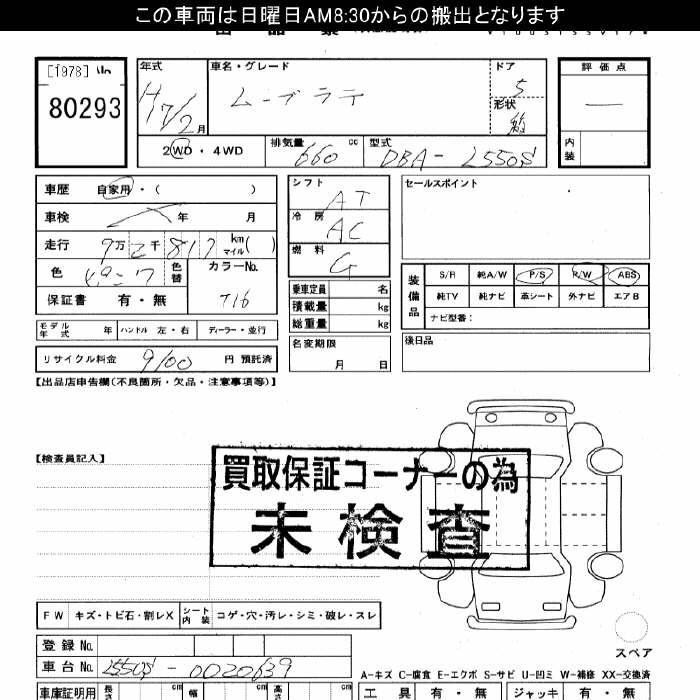 この車両は日曜日AM8:30からの搬出となります
[1978]
80293
年式 車名・グレード ドア 評価点
H17/2月 ムーブラテ 5 ―
形状 箱
2WD・4WD 排気量 660 cc 型式 DBA-L550S 内装
車歴 自家用・( ) シフト AT セールスポイント
車検 年 月 冷房 AC
走行 9万2千817 km マイル( ) 燃料 G
色 ピンク 色替 カラーNo. T16
保証書 有・無
装備品 S/R 純A/W P/S R/W ABS
純TV 純ナビ 革シート 外ナビ エアB
ナビ型番:
乗車定員 名
積載量 kg
総重量 kg
モデル年式 年 ハンドル 左・右 ディーラー・並行
名変期限 月 日
後日品
リサイクル料金 9100 円 預託済
【出品店申告欄(不良箇所・欠品・注意事項等)】
【検査員記入】
買取保証コーナーの為
未検査
FW キズ・トビ石・割レX シート内装 コゲ・穴・汚レ・シミ・破レ・スレ
スペア
登録No.
車台No. L550S-0020639
A-キズ C-腐食 E-エクボ S-サビ U-凹ミ W-補修 XX-交換済
車庫証明用 長さ cm 幅 cm 高さ cm 工具 有・無 ジャッキ 有・無